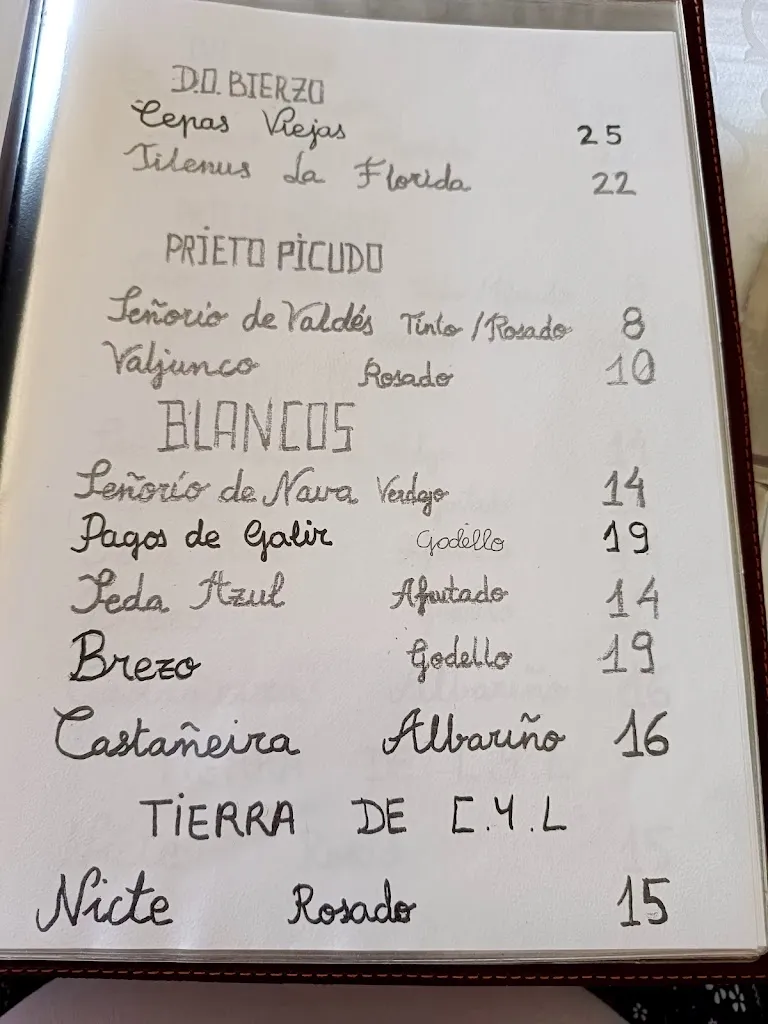 D.O. BIERZO
Cepas Viejas 25
Tilenus La Florida 22
PRIETO PICUDO
Señorio de Valdés Tinto / Rosado 8
Valjunco Rosado 10
BLANCOS
Señorío de Nava Verdejo 14
Pagos de Galir Godello 19
Seda Azul Afrutado 14
Brezo Godello 19
Castañeira Albariño 16
TIERRA DE C.Y.L
Nicte Rosado 15